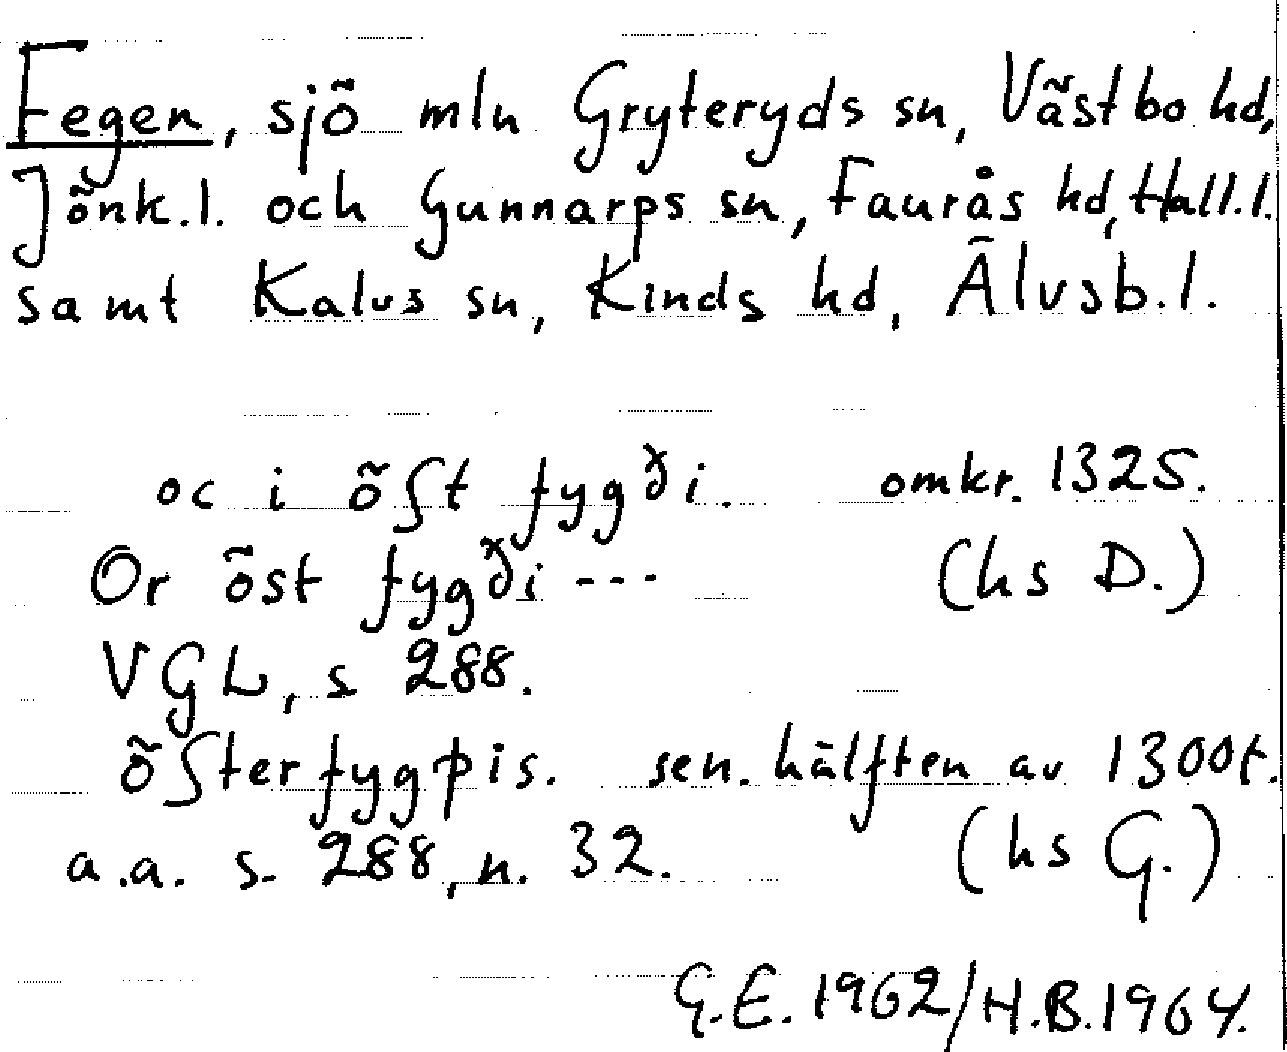 Fegen, sjö mln Gryteryds sn, Västbo hd,
Jönk.l. och Gunnarps sn, Faurås hd, Hall.l.
samt Kalvs sn, Kinds hd, Älvsb.l.
oc i öſt fygði. omkr. 1325.
Or öst fygði --- (hs D.)
VGL, s 288.
öſterfygþis. sen. hälften av 1300t.
a.a. s. 288, n. 32. (hs G.)
G.E. 1962/H.B. 1964.